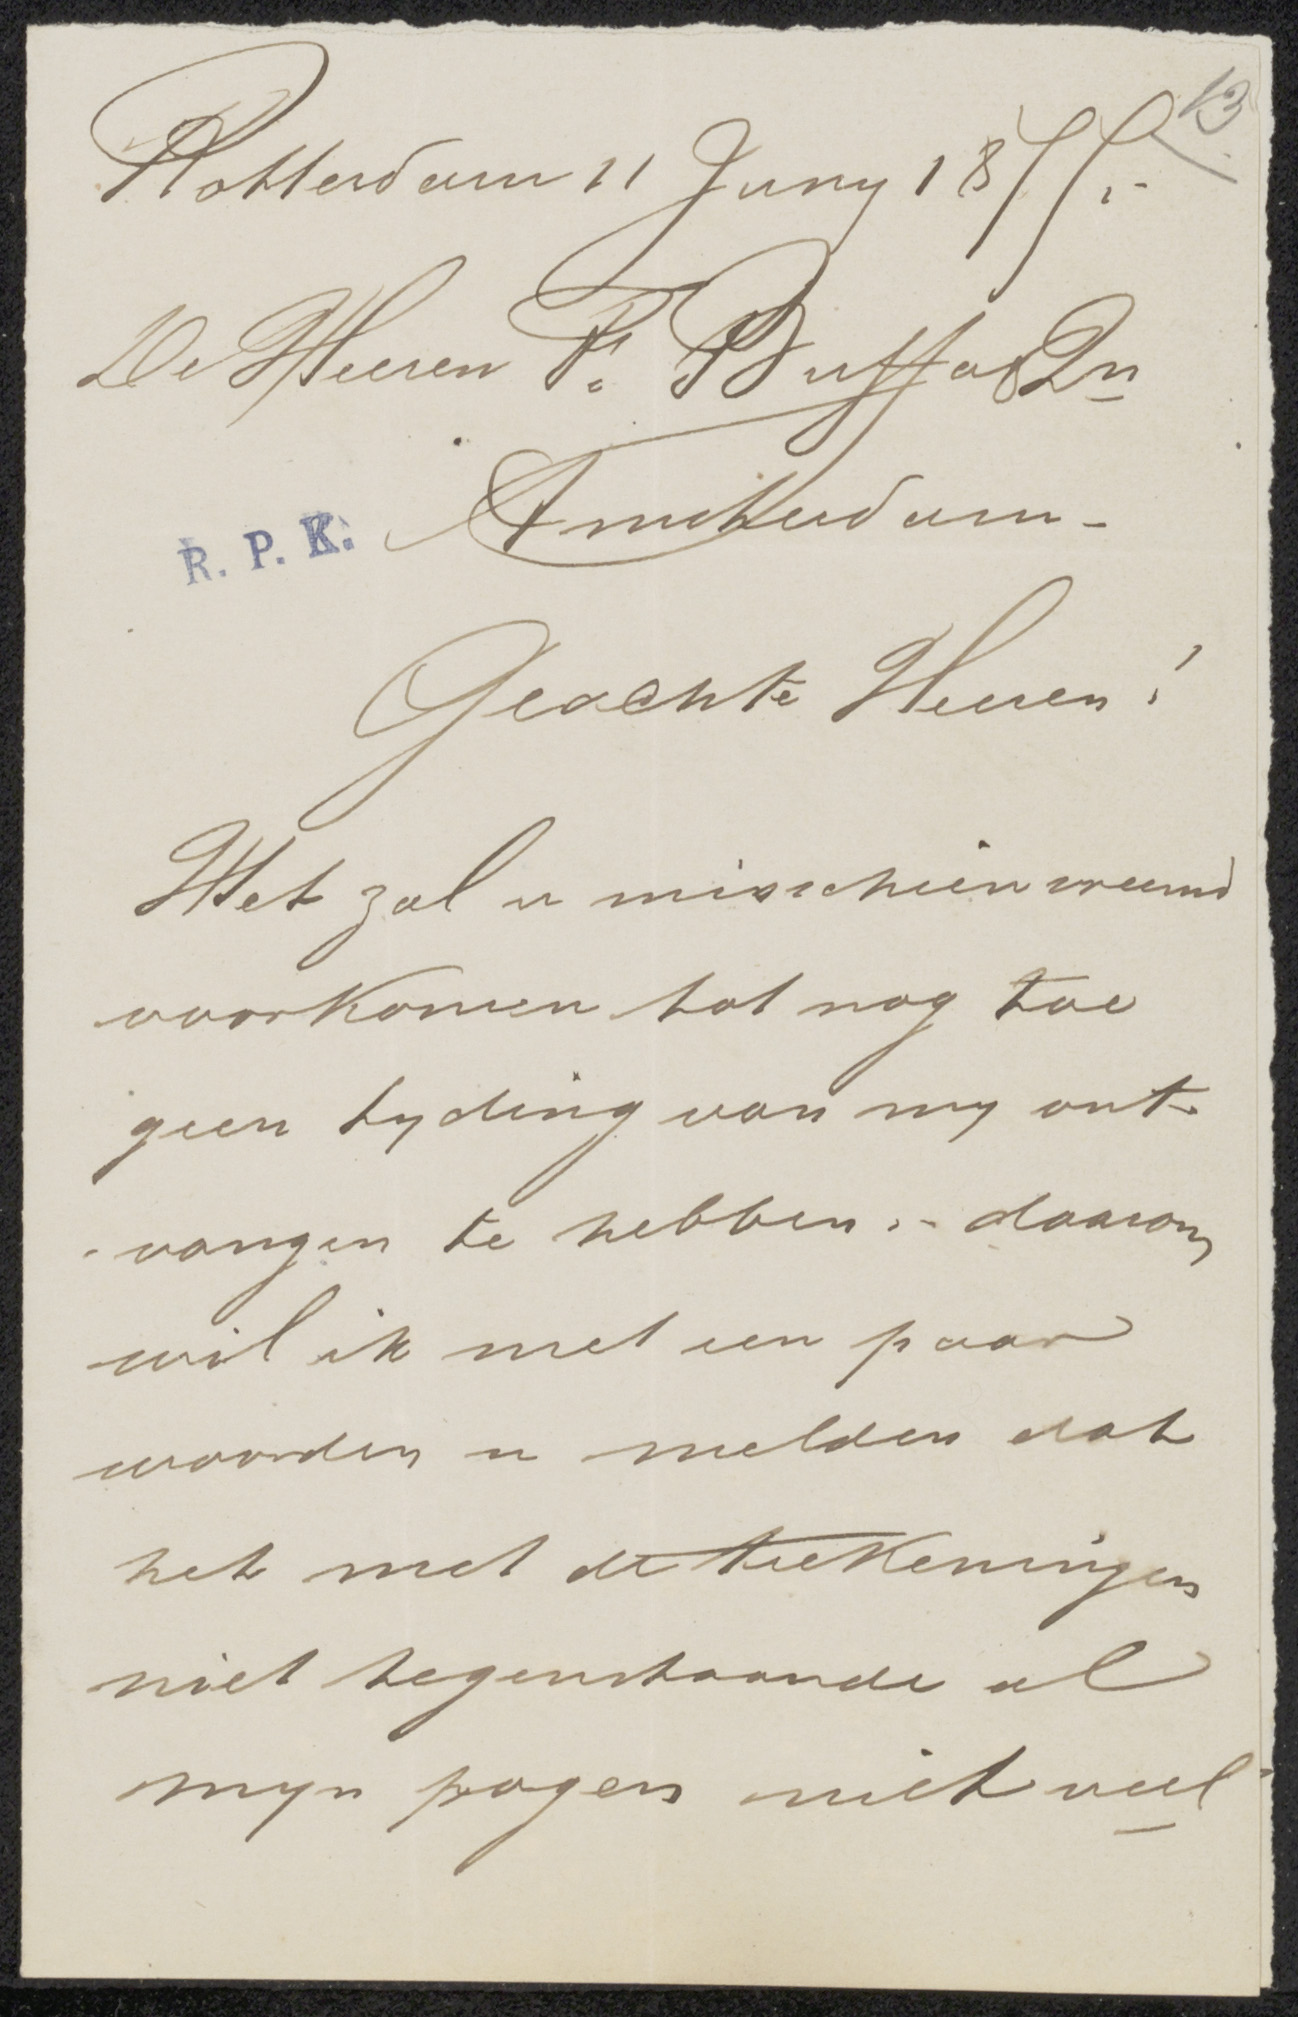 13
Rotterdam 11 Juny 1877.-
De Heeren F. Buffa & Zn
Amsterdam -
R. P. K.
Geachte Heeren!
Het zal u misschien vreemd
voorkomen tot nog toe
geen tyding van my ont-
-vangen te hebben .- daarom
wil ik met een paar
woorden u melden dat
het met de teekeningen
niet tegenstaande al
myn pogen niet veel